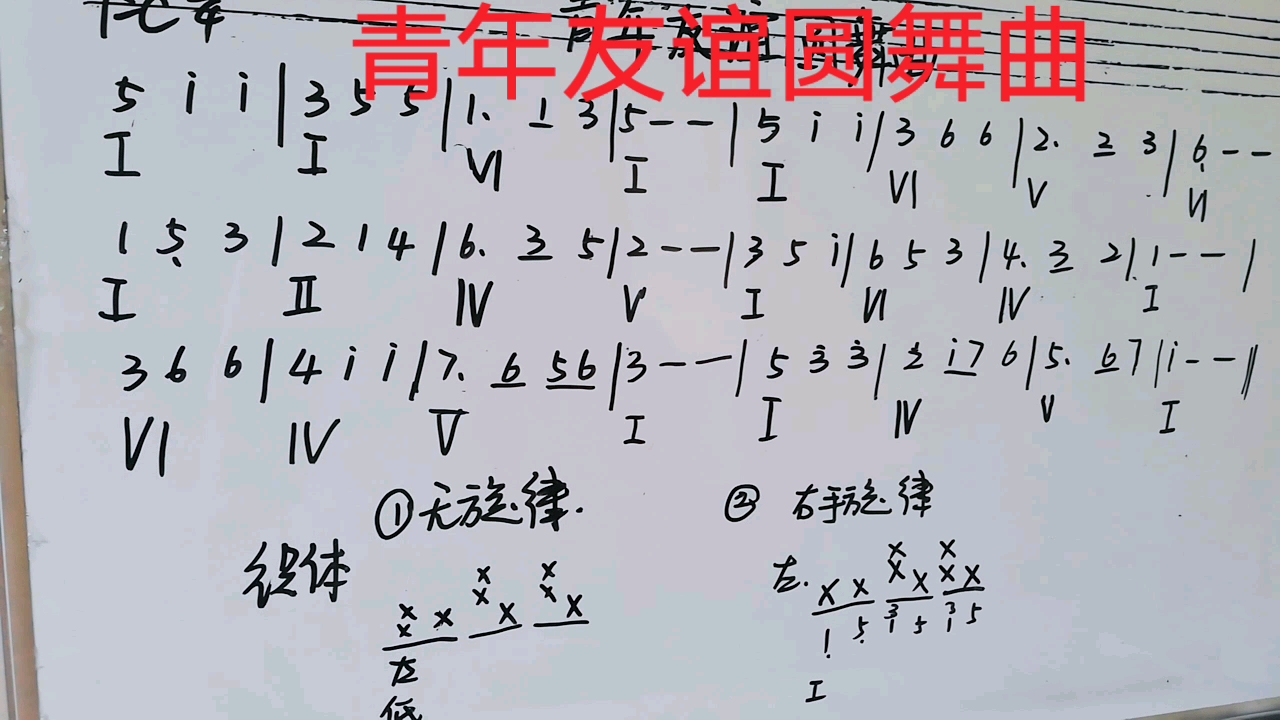 青年友谊圆舞曲
5 i i | 3 5 5 | 1. 1 3 | 5 - - | 5 i i | 3 6 6 | 2. 2 3 | 6̣ - -
I I VI I I VI V VI
1 5̣ 3 | 2 1 4 | 6. 3 5 | 2 - - | 3 5 i | 6 5 3 | 4. 3 2 | 1 - - |
I II IV V I VI IV I
3 6 6 | 4 i i | 7. 6 56 | 3 - - | 5 3̇ 3̇ | 2̇ i7 6 | 5. 67 | i - - ||
VI IV V I I IV V I
①无旋律. ②右手旋律
织体
x x x x
x x x x x 左. x x x x x x
左 1 5̣ 3 1 5 3 1 5
低 I